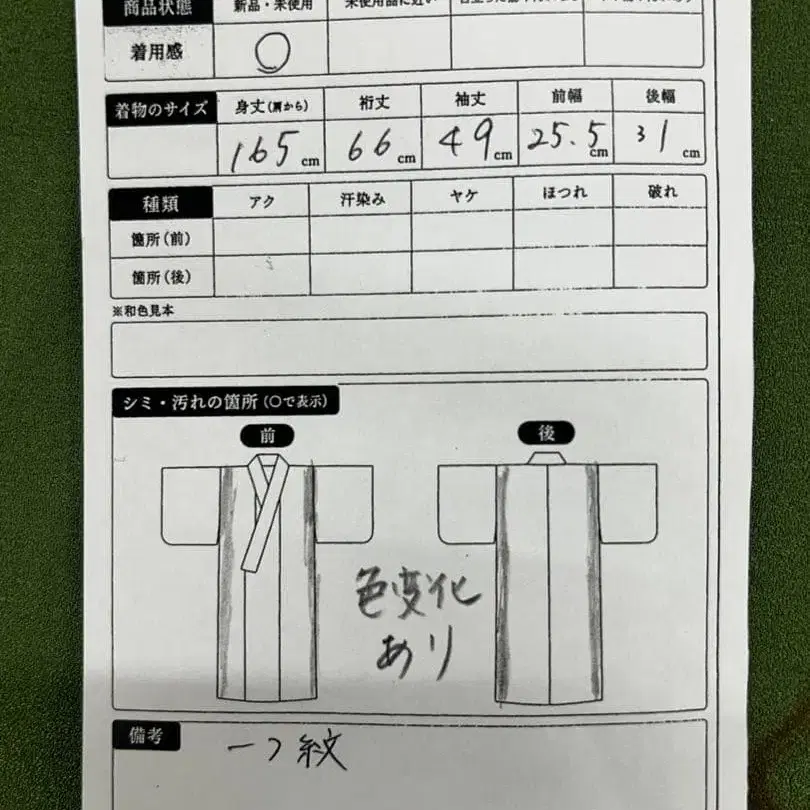 商品状態 新品・未使用 未使用品に近い
着用感 ○
着物のサイズ 身丈(肩から) 裄丈 袖丈 前幅 後幅
165cm 66cm 49cm 25.5cm 31cm
種類 アク 汗染み ヤケ ほつれ 破れ
箇所(前)
箇所(後)
※和色見本
シミ・汚れの箇所(○で表示)
前 後
色変化
あり
備考 一つ紋